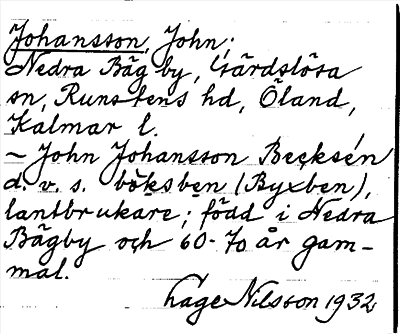 Johansson, John;
Nedra Bägby, Gärdslösa
sn, Runstens hd, Öland,
Kalmar l.
– John Johansson Becksén
d. v. s. böksben (Byxben),
lantbrukare; född i Nedra
Bägby och 60-70 år gam-
mal.
Åge Nilsson 1932